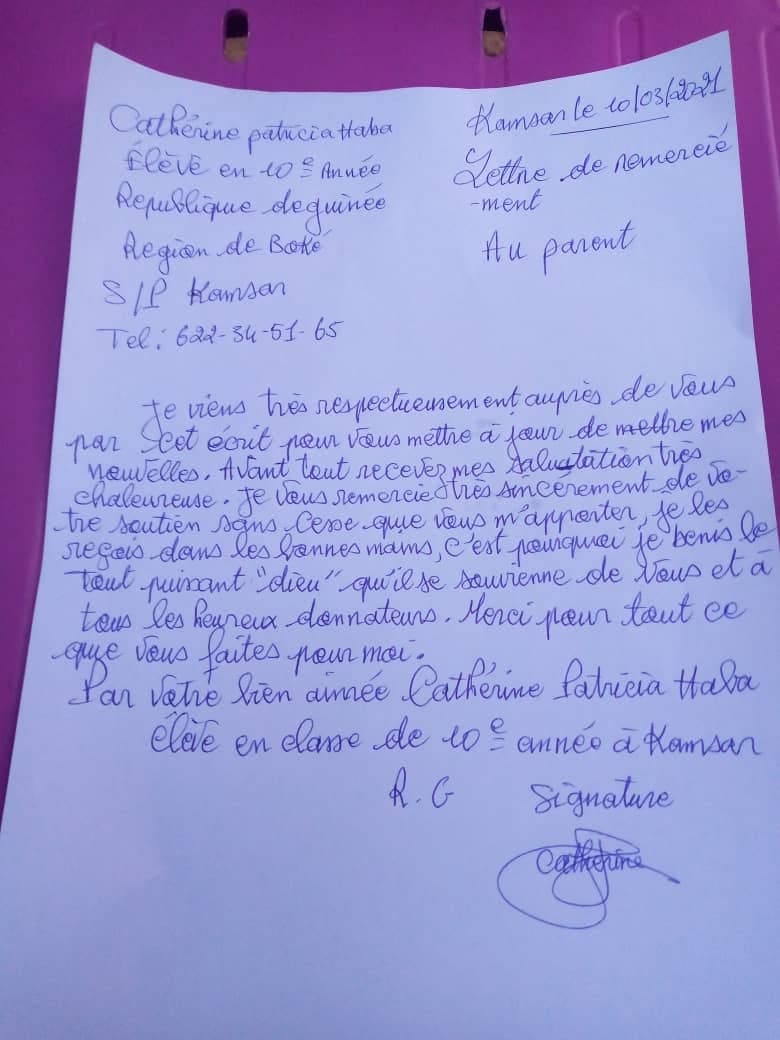 Cathérine patricia Haba
Élève en 10e Année
Republique deguinée
Region de Boké
S/P Kamsar
Tel: 622-34-51-65
Kamsar le 10/03/2021
Lettre de remercié
-ment
Au parent
Je viens très respectueusement auprès de vous
par cet écrit pour vous mettre à jour de mettre mes
nouvelles. Avant tout recevez mes salutation très
chaleureuse. Je vous remercie très sincérement de vo-
tre soutien sans cesse que vous m'apporter, je les
reçois dans les bonnes mains, c'est pourquoi je benis le
tout puissant "dieu" qu'il se souvienne de vous et à
tous les heureux donnateurs. Merci pour tout ce
que vous faites pour moi.
Par votre bien aimée Cathérine Patricia Haba
élève en classe de 10e année à Kamsar
R.G Signature
Catherine